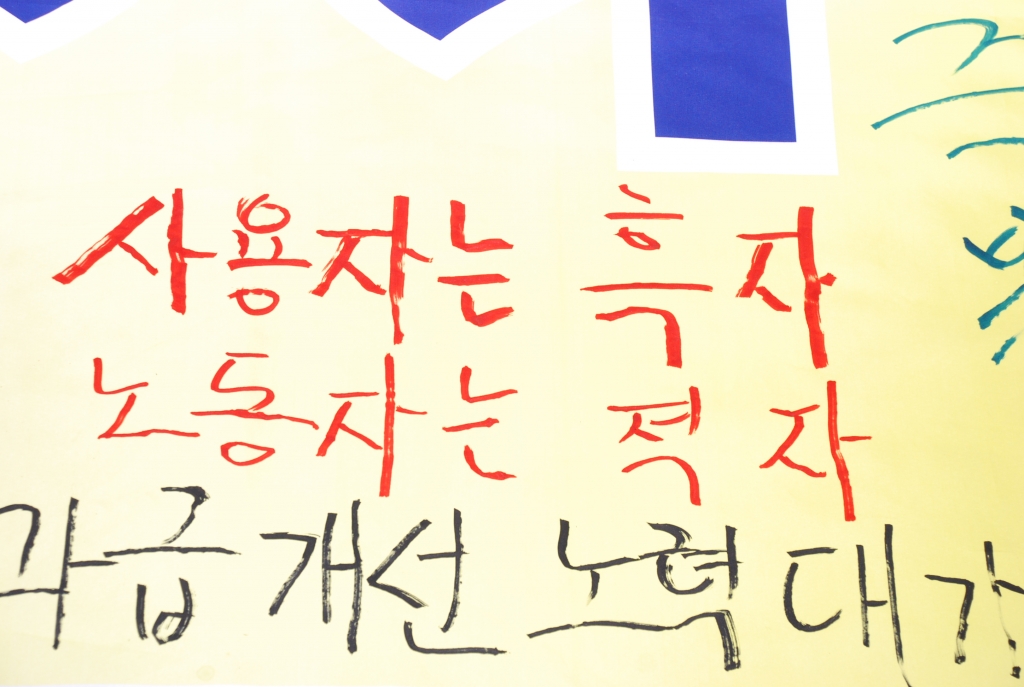 사용자는 흑자
노동자는 적자
과급개선 노력대